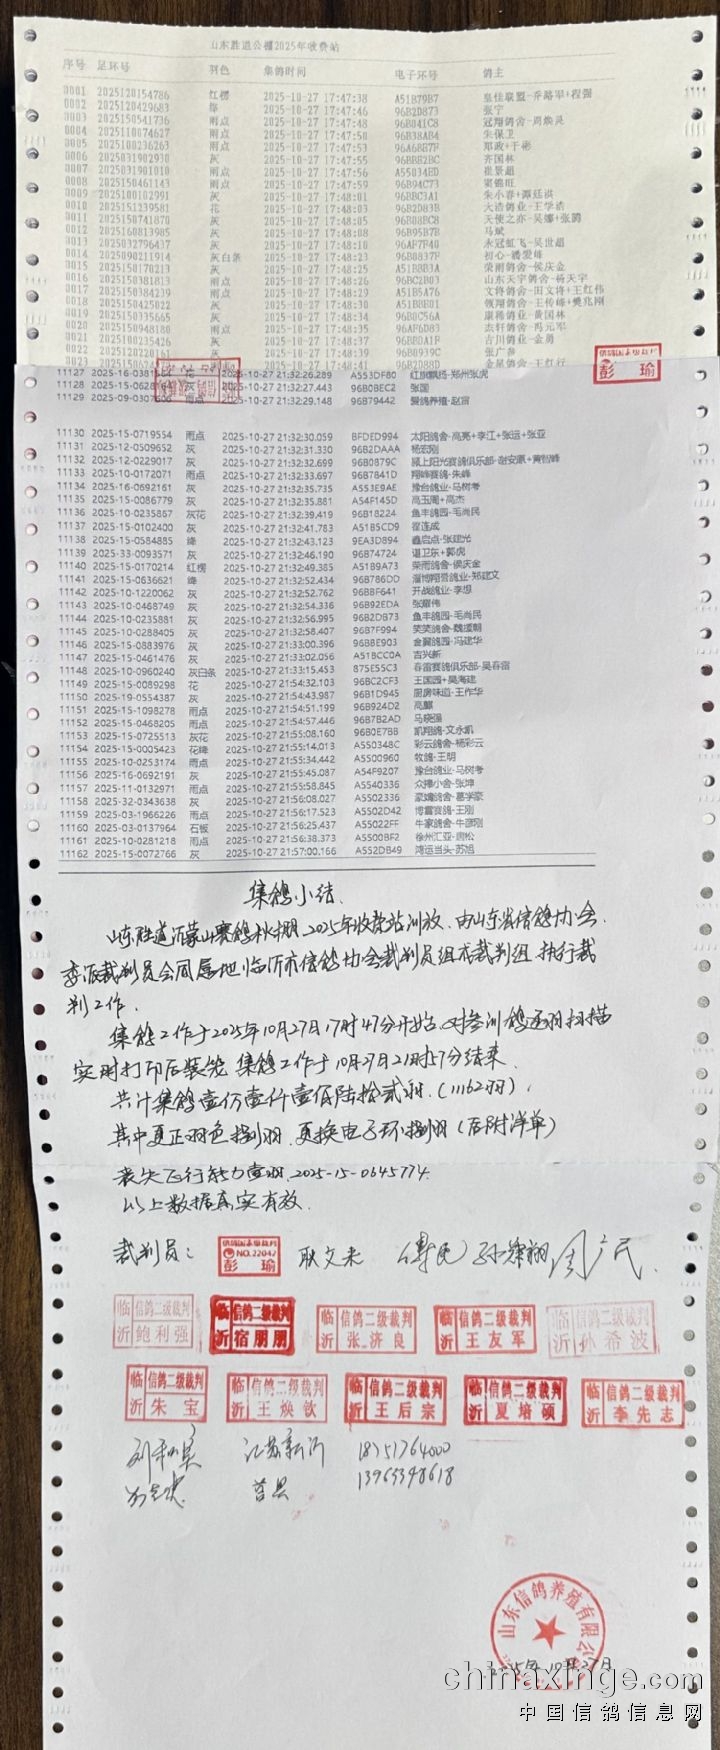 山东胜道公棚2025年收费站
序号 足环号 羽色 集鸽时间 电子环号 鸽主
0001 2025120154786 红楞 2025-10-27 17:47:38 A51B79B7 皇佳联盟-乔路军+程强
0002 2025120429683 绛 2025-10-27 17:47:46 96B2D873 张宁
0003 2025150541736 雨点 2025-10-27 17:47:48 96B041C8 冠翔鸽舍-周焕灵
0004 2025110074627 雨点 2025-10-27 17:47:50 96B38AB4 朱保卫
0005 2025100236263 雨点 2025-10-27 17:47:53 96A6BE7F 郑政+于彬
0006 2025031902930 灰 2025-10-27 17:47:55 96BBE2BC 齐国林
0007 2025031901010 雨点 2025-10-27 17:47:56 A55034ED 崔景超
0008 2025150461143 雨点 2025-10-27 17:47:59 96B94C73 窦锦旺
0009 2025100102991 灰 2025-10-27 17:48:01 96BBC3A1 朱小春+谭廷祺
0010 2025151239581 花 2025-10-27 17:48:03 96B2D83B 大浩鸽业-王学浩
0011 2025150741870 灰 2025-10-27 17:48:05 96B08BC8 天使之亦-吴娜+张腾
0012 2025160813985 灰 2025-10-27 17:48:08 96B95B7B 马斌
0013 2025032796437 灰 2025-10-27 17:48:10 96AF7F40 永冠虹飞-吴世超
0014 2025090211914 灰白条 2025-10-27 17:48:23 96B0837F 初心-潘爱峰
0015 2025150170213 灰 2025-10-27 17:48:25 A51B8B3A 荣雨鸽舍-侯庆金
0016 2025150381813 雨点 2025-10-27 17:48:26 96BC2B03 山东天宇鸽舍-杨天宇
0017 2025150384239 雨点 2025-10-27 17:48:29 A51B5A76 文将鸽舍-田文将+王红伟
0018 2025150425022 灰 2025-10-27 17:48:30 A51B0E01 领翔鸽舍-王传峰+樊兆刚
0019 2025150335665 灰 2025-10-27 17:48:34 96B0C56A 康稀鸽业-黄国林
0020 2025150948180 雨点 2025-10-27 17:48:35 96AF6D83 杰轩鸽舍-冯元军
0021 2025100235426 灰 2025-10-27 17:48:37 96BB0A1F 古川鸽业-金勇
0022 2025122220161 灰 2025-10-27 17:48:39 96B0939C 张广参
0023 2025-10-27 17:48:41 96B2D888 金星鸽舍-王红行
彭瑜
11127 2025-16-0381 花 2025-10-27 21:32:26.289 A553DF80 红旗飘扬-郑州张虎
11128 2025-15-0628 灰 2025-10-27 21:32:27.443 96B0BEC2 张国
11129 2025-09-0307606 雨点 2025-10-27 21:32:29.148 96B79442 爱鸽养殖-赵雷
11130 2025-15-0719554 雨点 2025-10-27 21:32:30.059 BFDED994 太阳鸽舍-高亮+李江+张运+张亚
11131 2025-12-0509652 灰 2025-10-27 21:32:31.330 96B2DAAA 杨宏刚
11132 2025-12-0229017 灰 2025-10-27 21:32:32.699 96B0879C 颍上阳光赛鸽俱乐部-谢安愿+黄智峰
11133 2025-10-0172071 雨点 2025-10-27 21:32:33.697 96B7841D 翔峰赛鸽-朱峰
11134 2025-16-0692161 灰 2025-10-27 21:32:35.735 A553E9AE 豫台鸽业-马树考
11135 2025-15-0086779 灰 2025-10-27 21:32:35.881 A54F145D 高玉周+高杰
11136 2025-10-0235867 灰花 2025-10-27 21:32:39.419 96B18224 鱼丰鸽园-毛尚民
11137 2025-15-0102400 灰 2025-10-27 21:32:41.783 A51B5CD9 翟连成
11138 2025-15-0584885 绛 2025-10-27 21:32:43.123 9EA3D894 鑫启点-张建光
11139 2025-33-0093571 灰 2025-10-27 21:32:46.190 96B74724 谌卫东+郭虎
11140 2025-15-0170214 红楞 2025-10-27 21:32:49.385 A51B9A73 荣雨鸽舍-侯庆金
11141 2025-15-0636621 绛 2025-10-27 21:32:52.434 96B786DD 淄博翔晋鸽业-郑建文
11142 2025-10-1220062 灰 2025-10-27 21:32:52.762 96BBF641 开战鸽业-李想
11143 2025-10-0468749 灰 2025-10-27 21:32:54.336 96B92EDA 张耀伟
11144 2025-10-0235881 灰 2025-10-27 21:32:56.995 96B2DB73 鱼丰鸽园-毛尚民
11145 2025-10-0288405 灰 2025-10-27 21:32:58.407 96B7F994 笑笑鸽舍-魏援朝
11146 2025-15-0883976 灰 2025-10-27 21:33:00.396 96BBE903 金翼鸽园-冯建华
11147 2025-15-0461476 灰 2025-10-27 21:33:02.056 A51BCC0A 吉兴新
11148 2025-10-0960240 灰白条 2025-10-27 21:33:15.453 875E55C3 春雷赛鸽俱乐部-吴春雷
11149 2025-15-0089298 花 2025-10-27 21:54:32.103 96BC2CF3 王国园+吴海建
11150 2025-19-0554387 灰 2025-10-27 21:54:43.987 96B1D945 厨房味道-王作华
11151 2025-15-1098278 雨点 2025-10-27 21:54:51.199 96B924D2 高麒
11152 2025-15-0468205 雨点 2025-10-27 21:54:57.446 96B7B2AD 马晓强
11153 2025-15-0725513 灰花 2025-10-27 21:55:08.160 96B0E7BB 凯翔鸽-文永凯
11154 2025-15-0005423 花绛 2025-10-27 21:55:14.013 A550348C 彩云鸽舍-杨彩云
11155 2025-10-0253174 雨点 2025-10-27 21:55:34.442 A5500960 牧鸽-王明
11156 2025-16-0692191 灰 2025-10-27 21:55:45.087 A54F9207 豫台鸽业-马树考
11157 2025-11-0132971 雨点 2025-10-27 21:55:58.845 A5540336 众博小舍-张坤
11158 2025-32-0343638 灰 2025-10-27 21:56:08.027 A5502336 豪嫡鸽舍-葛学豪
11159 2025-03-1966226 雨点 2025-10-27 21:56:17.523 A5502D42 博雷赛鸽-王刚
11160 2025-03-0137964 石板 2025-10-27 21:56:25.437 A55022FF 牛家鸽舍-牛彦刚
11161 2025-10-0281218 雨点 2025-10-27 21:56:38.373 A5500BF2 徐州汇亚-周松
11162 2025-15-0072766 灰 2025-10-27 21:57:00.166 A552DB49 鸿运当头-苏旭
集鸽小结
山东胜道沂蒙山赛鸽秋棚2025年收费站训放，由山东省信鸽协会
委派裁判员会同属地临沂市信鸽协会裁判员组成裁判组，执行裁
判工作。
集鸽工作于2025年10月27日17时47分开始，对参训鸽逐羽扫描
实时打印后装笼，集鸽工作于10月27日21时57分结束。
共计集鸽壹万壹仟壹佰陆拾贰羽。（11162羽）。
其中更正羽色捌羽，更换电子环捌羽（后附详单）
丧失飞行能力壹羽，2025-15-0645774.
以上数据真实有效。
裁判员：
信鸽国家级裁判 NO.22042 彭瑜 耿文来 孙肄翔 周广民
临沂 信鸽二级裁判 鲍利强
临沂 信鸽二级裁判 宿朋朋
临沂 信鸽二级裁判 张济良
临沂 信鸽二级裁判 王友军
临沂 信鸽二级裁判 孙希波
临沂 信鸽二级裁判 朱宝
临沂 信鸽二级裁判 王焕钦
临沂 信鸽二级裁判 王后宗
临沂 信鸽二级裁判 夏培硕
临沂 信鸽二级裁判 李先志
江苏新沂 18751764000
莒县 13965398618
山东信鸽养殖有限公司
2025年10月27日
chinaxinge.com
中国信鸽信息网